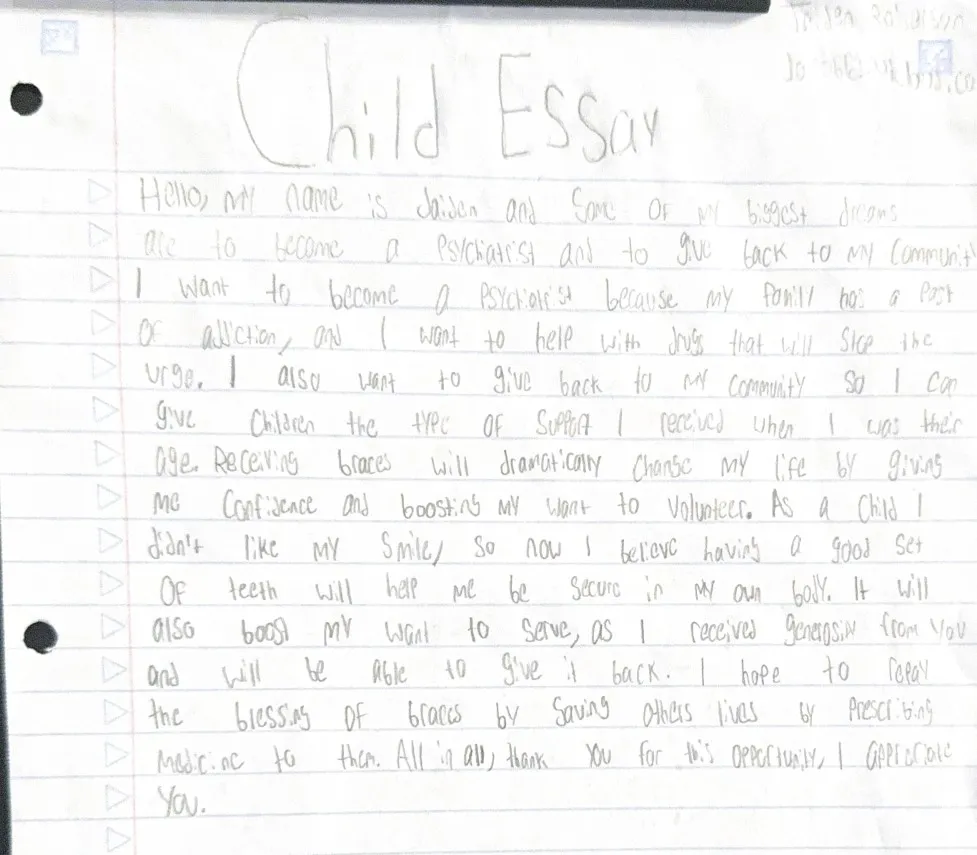 Child Essay
Hello, my name is Jaiden and some of my biggest dreams
are to become a Psychiatrist and to give back to my Communit
I want to become a Psychiatrist because my family has a Past
of addiction, and I want to help with drugs that will stop the
urge. I also want to give back to my Community so I can
give Children the type of support I received when I was their
age. Receiving braces will dramatically change my life by giving
me Confidence and boosting my want to volunteer. As a Child I
didn't like my Smile, so now I believe having a good set
of teeth will help me be secure in my own body. It will
also boost my want to serve, as I received generosity from you
and will be able to give it back. I hope to repay
the blessing of braces by Saving others lives by Prescribing
Medicine to them. All in all, thank you for this opportunity, I
you.